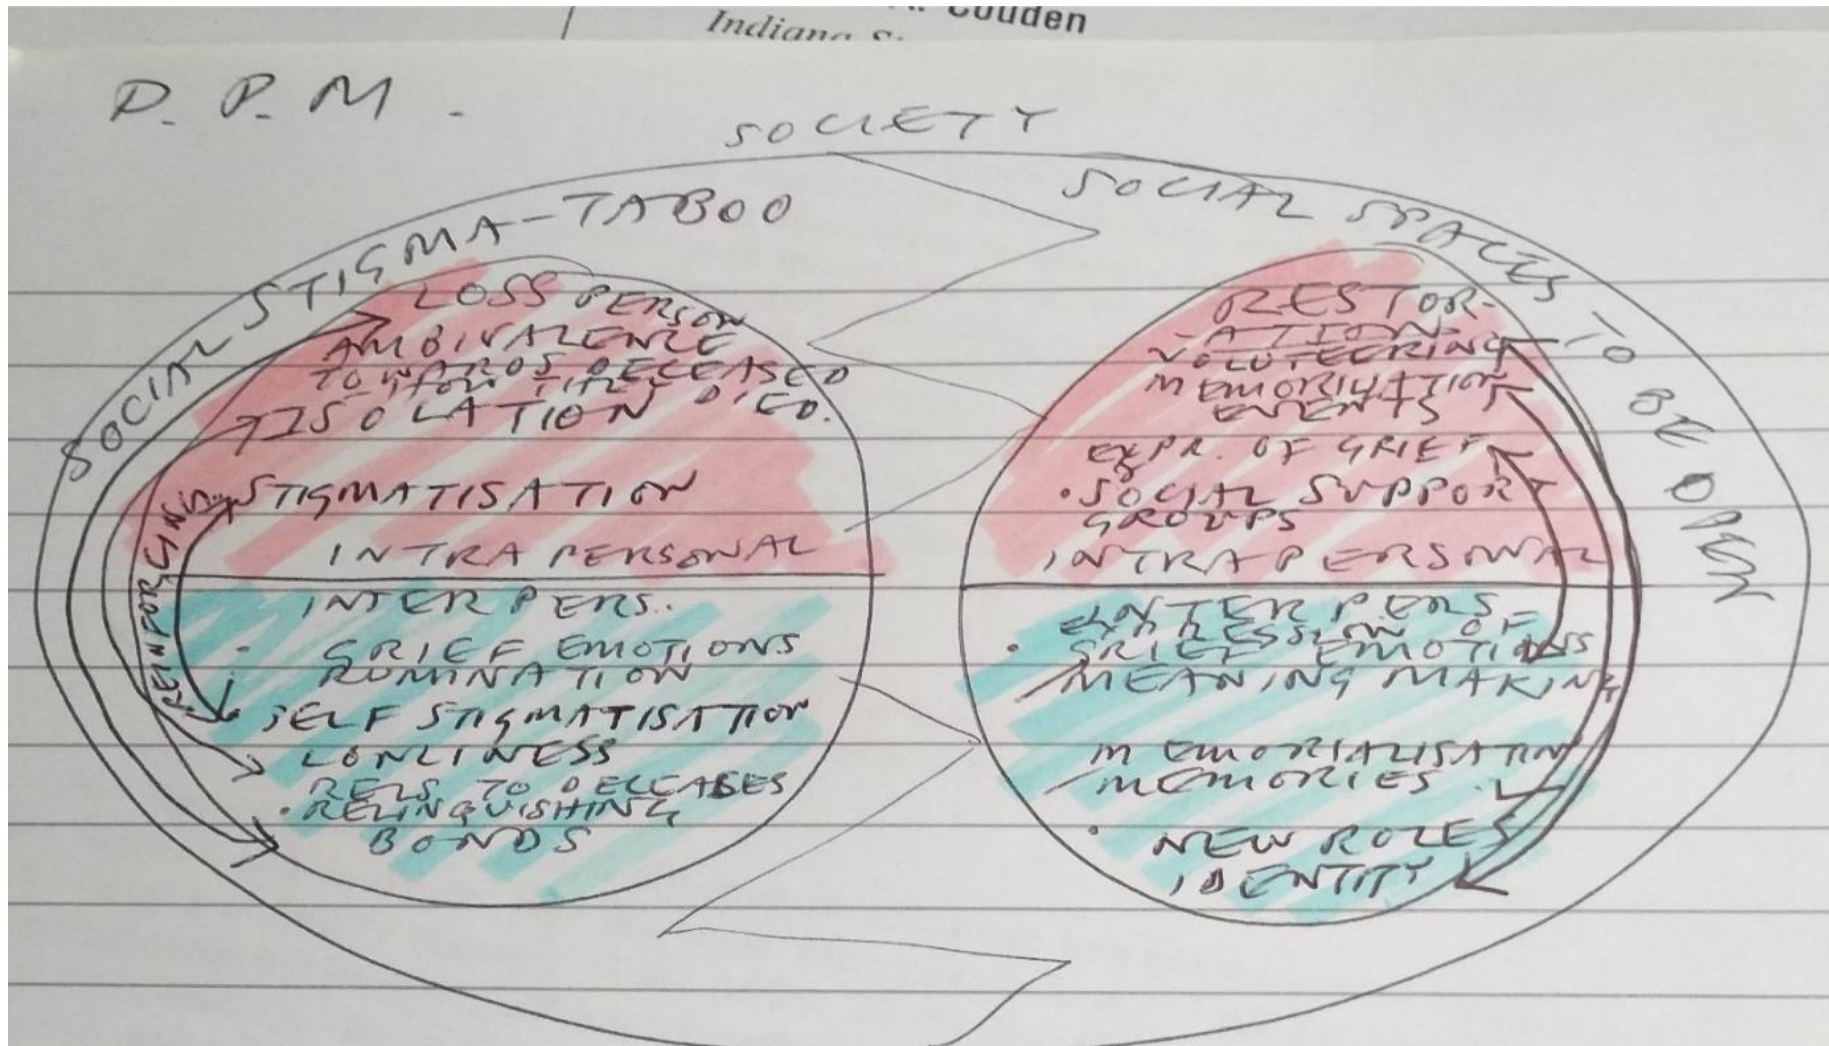 Couden
Indiana
D. P. M.
SOCIETY
SOCIAL STIGMA-TABOO
SOCIAL SPACES TO BE OPEN
LOSS PERSON
AMBIVALENCE
TOWARDS DECEASED
DIED.
ISOLATION
STIGMATISATION
INTRAPERSONAL
REINFORCING
INTERPERS.
GRIEF EMOTIONS
RUMINATION
SELF STIGMATISATION
LONLINESS
RELS TO DECEASES
• RELINQUISHING
BONDS
RESTOR-
-ATION-
VOLUTEERING
EVENTS
EXPR. OF GRIEF
• SOCIAL SUPPORT
GROUPS
INTRAPERSONAL
INTERPERS-
EXPRESSION OF
• GRIEF EMOTIONS
MEANING MAKING
MEMORIALISATION
MEMORIES
• NEW ROLES
IDENTITY